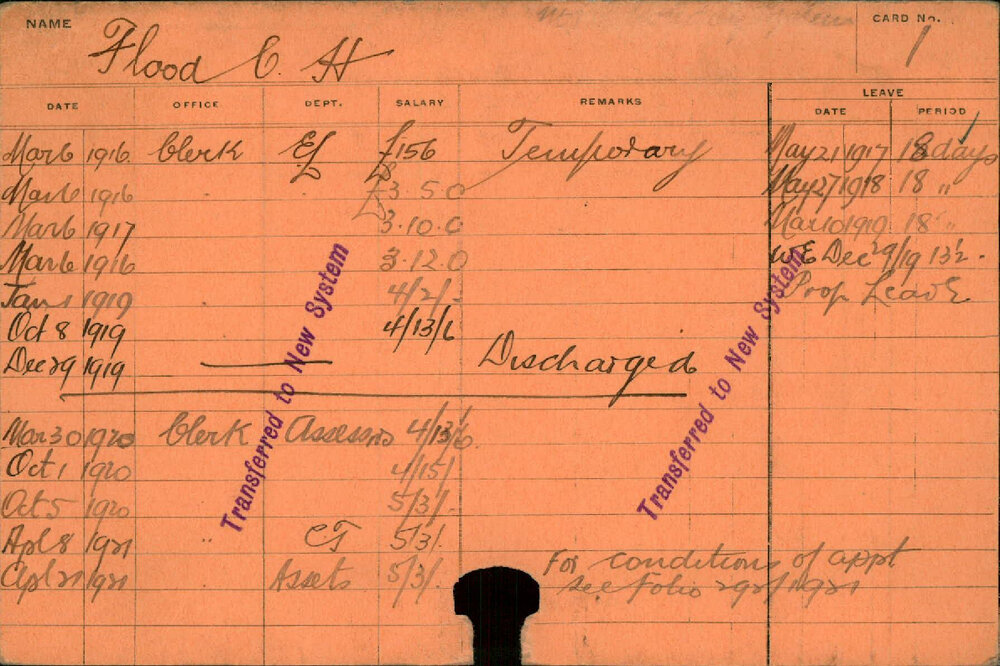 NAME
CARD No.
Flood C. H
1
DATE OFFICE DEPT. SALARY REMARKS LEAVE
DATE PERIOD
Mar 6 1916 Clerk EL £156 Temporary May 21 1917 18 days
Mar 6 1916 £3.5.0 May 27 1918 18 "
Mar 6 1917 3.10.0 Mar 10 1919 18 "
Mar 6 1916 3.12.0 WE Dec 29/19 13½ .
Jan 1 1919 4/2/- Prop Leave
Oct 8 1919 4/13/6
Dec 29 1919 Discharged
Mar 30 1920 Clerk Assessrs 4/13/6
Oct 1 1920 4/15/
Oct 5 1920 5/3/-
Apl 8 1921 " CT 5/3/.
Apl 21 1921 Assets 5/3/. For conditions of appt
see Folio /1921
Transferred to New System
Transferred to New System